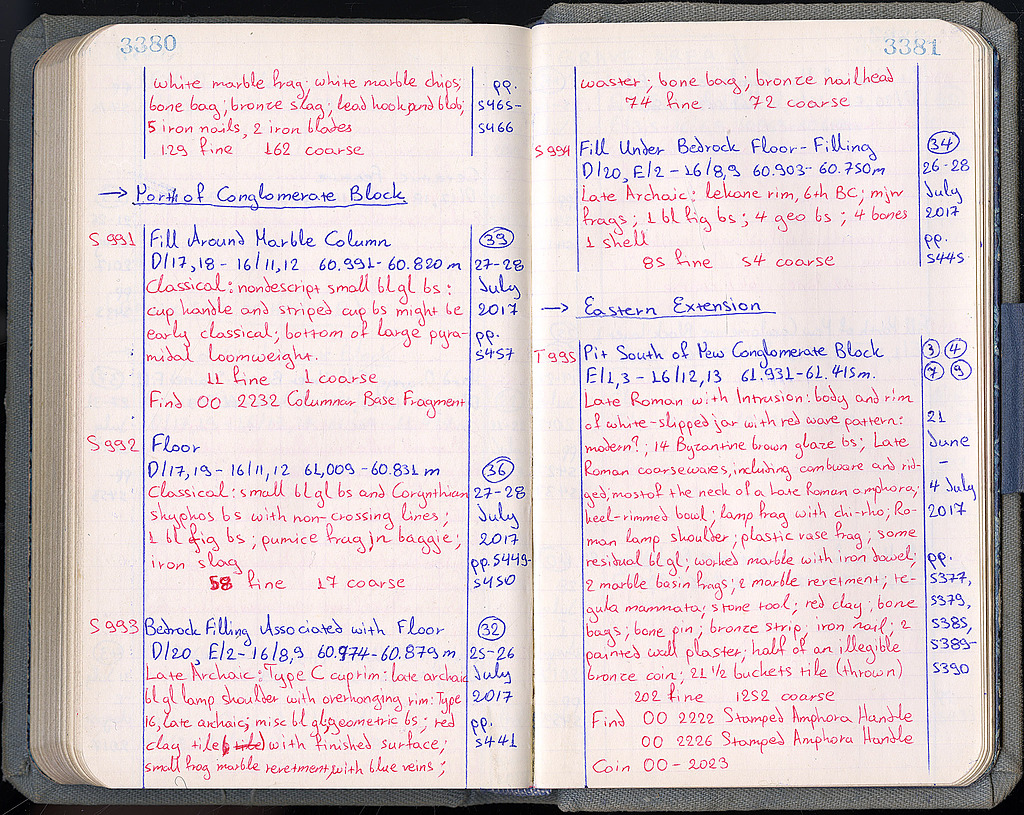 3380
white marble frag; white marble chips; pp.
bone bag; bronze slag; lead hook and blob; 5465-
5 iron nails, 2 iron blades 5466
129 fine 162 coarse
→ North of Conglomerate Block
S 991 Fill Around Marble Column 39
D/17,18 - 16/11,12 60.991- 60.820 m 27-28
Classical: nondescript small bl gl bs: July
cup handle and striped cup bs might be 2017
early classical; bottom of large pyra- pp.
midal loomweight. 5457
11 fine 1 coarse
Find OO 2232 Columnar Base Fragment
S 992 Floor
D/17,19 - 16/11,12 61,009 - 60.831 m 36
Classical: small bl gl bs and Corynthian 27-28
skyphos bs with non-crossing lines; July
1 bl fig bs; pumice frag in baggie; 2017
iron slag pp. 5449-
58 fine 17 coarse 5450
S 993 Bedrock Filling Associated with Floor 32
D/20, E/2 - 16/8,9 60.974 - 60.879 m 25-26
Late Archaic: Type C cup rim: late archaic July
bl gl lamp shoulder with overhanging rim: Type 2017
16, late archaic; misc bl gl; geometric bs; red pp.
clay tile with finished surface; 5441
small frag marble revetment, with blue veins;
3381
waster; bone bag; bronze nailhead
74 fine 72 coarse
S 994 Fill Under Bedrock Floor-Filling 34
D/20, E/2 - 16/8,9 60.903- 60.750m 26-28
Late Archaic: lekane rim, 6th BC; mjw July
frags; 1 bl fig bs; 4 geo bs; 4 bones 2017
1 shell pp.
85 fine 54 coarse 5445
→ Eastern Extension
T 995 Pit South of New Conglomerate Block 3 4
E/1,3 - 16/12,13 61.931-61.415m. 7 9
Late Roman with Intrusion: body and rim
of white-slipped jar with red wave pattern: 21
modern?; 14 Byzantine brown glaze bs; Late June
Roman coarsewares, including combware and rid- -
ged; most of the neck of a Late Roman amphora; 4 July
heel-rimmed bowl; lamp frag with chi-rho; Ro- 2017
man lamp shoulder; plastic vase frag; some
residual bl gl; worked marble with iron dowel; pp.
2 marble basin frags; 2 marble revetment; te- 5377,
gula mammata; stone tool; red clay; bone 5379,
bags; bone pin; bronze strip; iron nail; 2 5385,
painted wall plaster; half of an illegible 5389-
bronze coin; 21 1/2 buckets tile (thrown) 5390
202 fine 1252 coarse
Find OO 2222 Stamped Amphora Handle
OO 2226 Stamped Amphora Handle
Coin OO - 2023